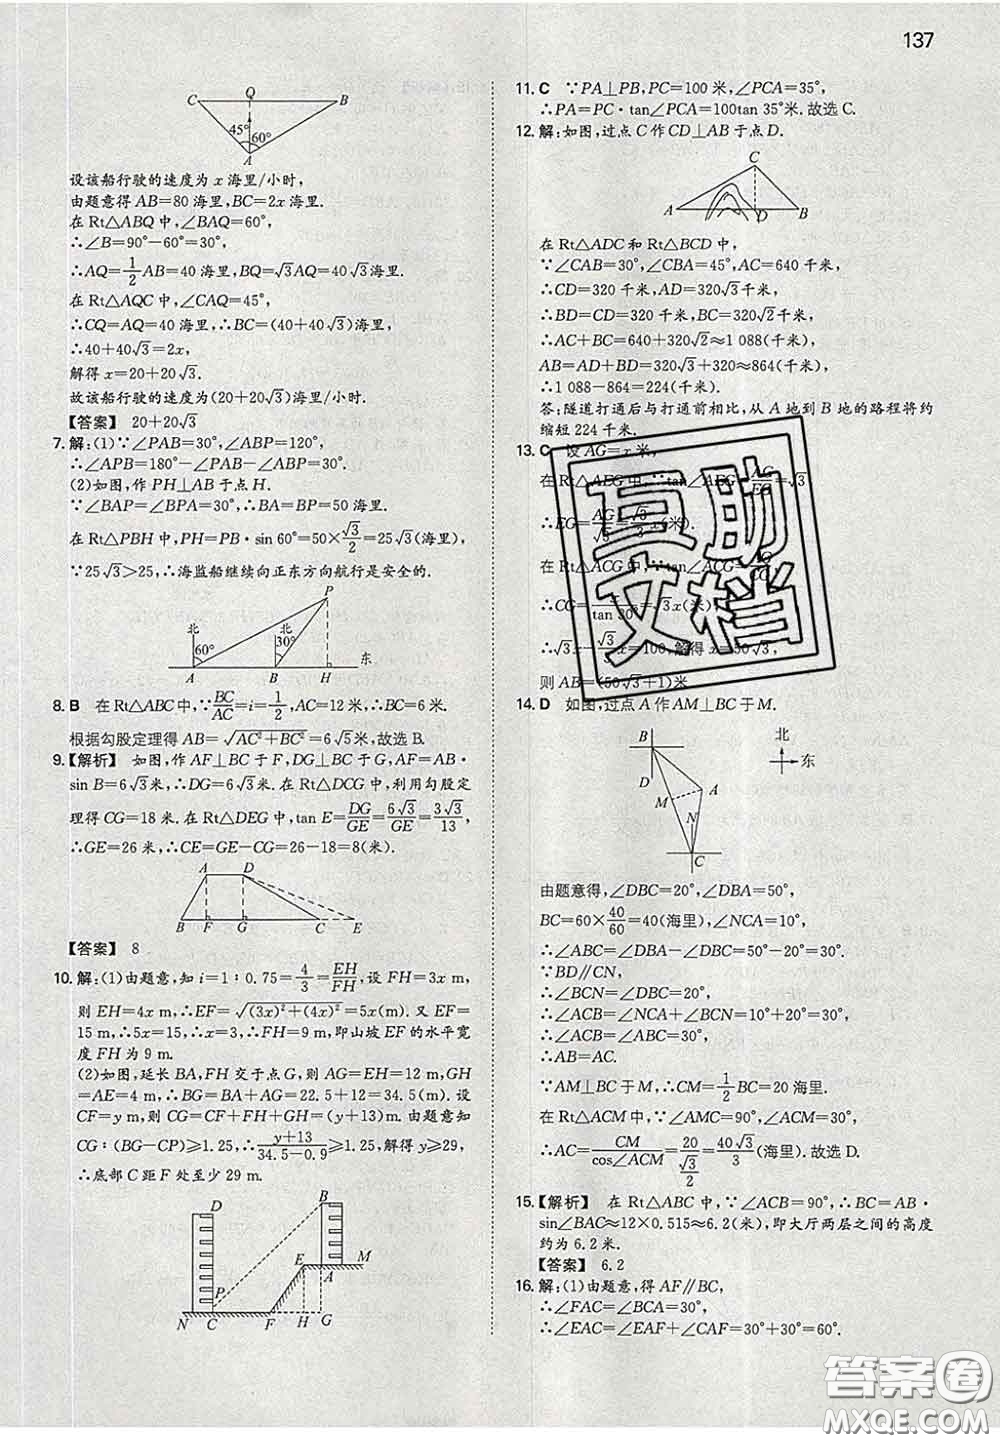 137
C Q B
45° 60°
A
设该船行驶的速度为 x 海里/小时,
由题意得 AB=80 海里,BC=2x 海里.
在 Rt△ABQ 中,∠BAQ=60°,
∴∠B=90°−60°=30°,
∴AQ=1/2AB=40 海里,BQ=√3AQ=40√3海里.
在 Rt△AQC 中,∠CAQ=45°,
∴CQ=AQ=40 海里,∴BC=(40+40√3)海里,
∴40+40√3=2x,
解得 x=20+20√3.
故该船行驶的速度为(20+20√3)海里/小时.
【答案】 20+20√3
7. 解:(1)∵∠PAB=30°,∠ABP=120°,
∴∠APB=180°−∠PAB−∠ABP=30°.
(2)如图,作 PH⊥AB 于点 H.
∵∠BAP=∠BPA=30°,∴BA=BP=50 海里.
在 Rt△PBH 中,PH=PB·sin 60°=50×√3/2=25√3(海里),
∵25√3>25,∴海监船继续向正东方向航行是安全的.
P
北 北
60° 30° 东
A B H
8. B 在 Rt△ABC 中,∵BC/AC=i=1/2,AC=12 米,∴BC=6 米.
根据勾股定理得 AB=√(AC²+BC²)=6√5米,故选 B.
9. 【解析】 如图,作 AF⊥BC 于 F,DG⊥BC 于 G,AF=AB·
sin B=6√3米,∴DG=6√3米.在 Rt△DCG 中,利用勾股定
理得 CG=18 米.在 Rt△DEG 中,tan E=DG/GE=6√3/GE=3√3/13,
∴GE=26 米,∴CE=GE−CG=26−18=8(米).
A D
B F G C E
【答案】 8
10. 解:(1)由题意,知 i=1∶0.75=4/3=EH/FH,设 FH=3x m,
则 EH=4x m,∴EF=√((3x)²+(4x)²)=5x(m). 又 EF=
15 m,∴5x=15,∴x=3,∴FH=9 m,即山坡 EF 的水平宽
度 FH 为 9 m.
(2)如图,延长 BA,FH 交于点 G,则 AG=EH=12 m,GH
=AE=4 m,∴BG=BA+AG=22.5+12=34.5(m). 设
CF=y m,则 CG=CF+FH+GH=(y+13)m. 由题意知
CG∶(BG−CP)≥1.25,∴(y+13)/(34.5−0.9)≥1.25,解得 y≥29,
∴底部 C 距 F 处至少 29 m.
D B
E M
P A
N C F H G
11. C ∵PA⊥PB,PC=100 米,∠PCA=35°,
∴PA=PC·tan∠PCA=100tan 35°米.故选 C.
12. 解:如图,过点 C 作 CD⊥AB 于点 D.
C
A D B
在 Rt△ADC 和 Rt△BCD 中,
∵∠CAB=30°,∠CBA=45°,AC=640 千米,
∴CD=320 千米,AD=320√3千米,
∴BD=CD=320 千米,BC=320√2千米,
∴AC+BC=640+320√2≈1 088(千米),
AB=AD+BD=320√3+320≈864(千米),
∴1 088−864=224(千米).
答:隧道打通后与打通前相比,从 A 地到 B 地的路程将约
缩短 224 千米.
13. C 设 AG=x 米,
在 Rt△AEG 中,∵tan∠AEG=AG/EG=√3
∴EG=AG/√3=√3/3x(米).
在 Rt△ACG 中,∵tan∠ACG=AG/CG
∴CG=x/tan 30°=√3x(米)
∴√3x−√3/3x=100,解得 x=50√3,
则 AB=(50√3+1)米
14. D 如图,过点 A 作 AM⊥BC 于 M.
B 北
东
D A
M
N
C
由题意得,∠DBC=20°,∠DBA=50°,
BC=60×40/60=40(海里),∠NCA=10°,
∴∠ABC=∠DBA−∠DBC=50°−20°=30°.
∵BD∥CN,
∴∠BCN=∠DBC=20°,
∴∠ACB=∠ACN+∠BCN=10°+20°=30°,
∴∠ACB=∠ABC=30°,
∴AB=AC.
∵AM⊥BC 于 M,∴CM=1/2BC=20 海里.
在 Rt△ACM 中,∵∠AMC=90°,∠ACM=30°,
∴AC=CM/cos∠ACM=20/(√3/2)=40√3/3(海里).故选 D.
15. 【解析】 在 Rt△ABC 中,∵∠ACB=90°,∴BC=AB·
sin∠BAC≈12×0.515≈6.2(米),即大厅两层之间的高度
约为 6.2 米.
【答案】 6.2
16. 解:(1)由题意,得 AF∥BC,
∴∠FAC=∠BCA=30°,
∴∠EAC=∠EAF+∠CAF=30°+30°=60°.
互助
文档
答案圈
MXQE.COM